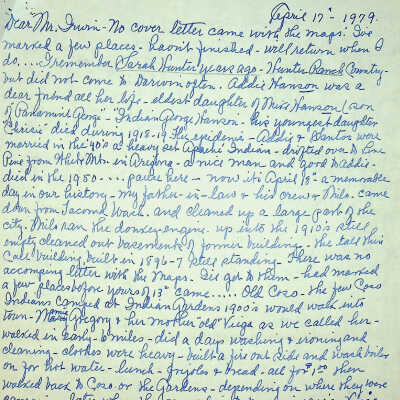 April 17 - 1979.
Dear Mr. Irwin - No cover letter came with the maps. I've
marked a few places - haven't finished - will return when I
do.... I remember Sarah Hunter years ago - Hunter Ranch Country -
but did not come to Darwin often. Addie Hanson was a
dear friend all her life - eldest daughter of Mike Hanson (son
of Panamint George - Indian George Hanson - his youngest daughter
died during 1918-19 flu epidemic - Addie & Santos were
married in the - a heavy set Apache Indian - drifted over to Lone
Pine from White Mtn in Arizona - a nice man and good to Addie -
died in the 1950.... pause here - now its April 18th a memorable
day in our history - my father-in-law & his crew & Milo came
down from Wash. and cleaned up a large part of the
city. Milo ran the donkey engine. up into the 1910's still
empty cleaned out basements of former building - the tall thin
Call Building built in 1896-7 still standing - There was no
accompng letter with the maps. Did get to them - had marked
a few places before yours of 13th came..... Old Coso - the few Coso
Indians camped at Indian Gardens 1900's would walk into
town - Mary Gregory & her mother "old" as we called her -
walked in early - 6 miles - did a days washing & ironing and
cleaning - clothes were heavy - built a fire out side and wash boiler
on for hot water - lunch - frijoles & bread - all for $1.00 then
walked back to Coso or the Gardens - depending on where they were